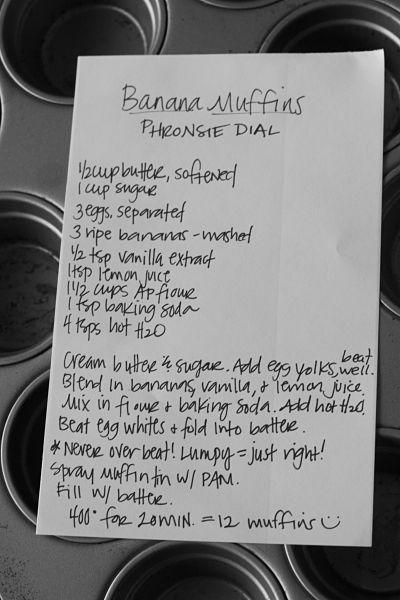 Banana Muffins
PHRONSIE DIAL
1/2 cup butter, softened
1 cup sugar
3 eggs, separated
3 ripe bananas - mashed
1/2 tsp vanilla extract
1 tsp lemon juice
1 1/2 cups AP flour
1 tsp baking soda
4 tsps hot H2O
Cream butter & sugar. Add egg yolks, beat well.
Blend in bananas, vanilla, & lemon juice
Mix in flour & baking soda. Add hot H2O.
Beat egg whites & fold into batter.
* Never over beat! Lumpy = just right!
Spray muffin tin w/ PAM.
Fill w/ batter.
400° for 20 min. = 12 muffins ☺